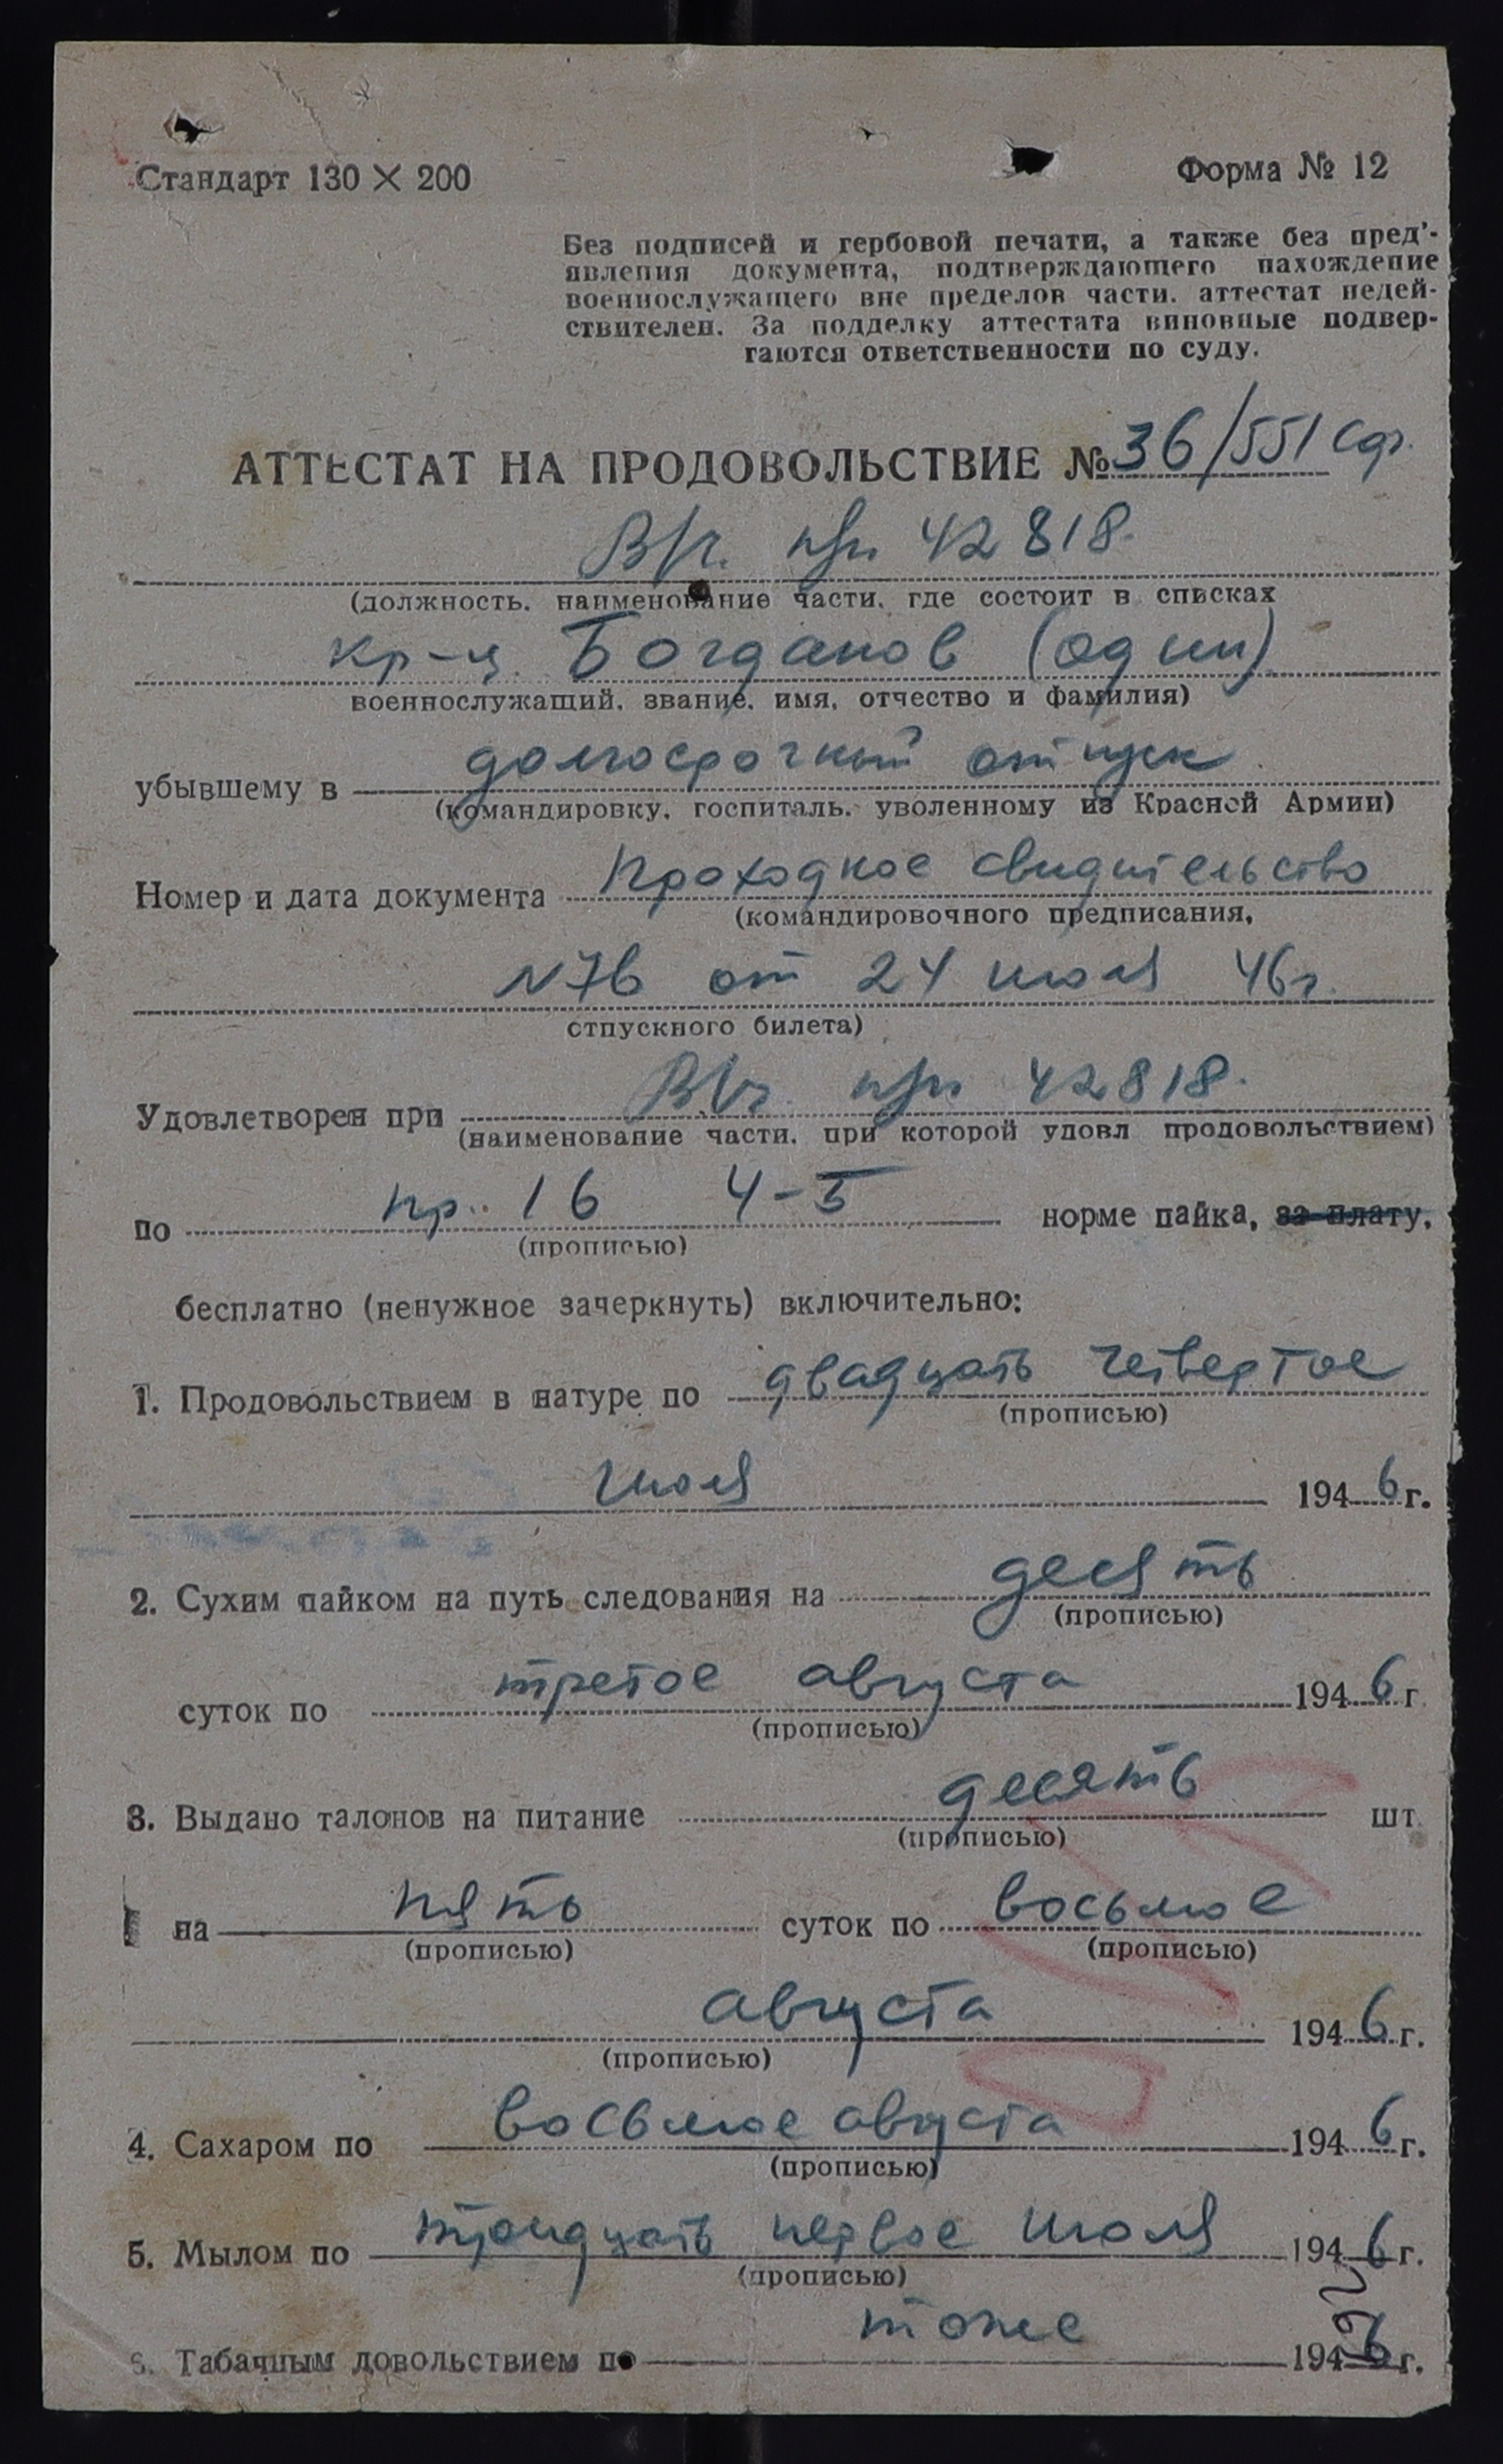 Стандарт 130 × 200 Форма № 12
Без подписей и гербовой печати, а также без пред'-
явления документа, подтверждающего нахождение
военнослужащего вне пределов части. аттестат недей-
ствителен. За подделку аттестата виновные подвер-
гаются ответственности по суду.
АТТЕСТАТ НА ПРОДОВОЛЬСТВИЕ № 36/551
В/ч. п/п 42818.
(должность. наименование части. где состоит в списках
кр-ц. Богданов (один)
военнослужащий. звание. имя. отчество и фамилия)
убывшему в долгосрочный отпуск
(командировку. госпиталь. уволенному из Красной Армии)
Номер и дата документа Проходное свидительство
(командировочного предписания,
N76 от 24 июля 46г.
отпускного билета)
Удовлетворен при В/ч. п/п 42818.
(наименование части. при которой удовл продовольствием)
по пр. 16 4-5 норме пайка, за плату,
(прописью)
бесплатно (ненужное зачеркнуть) включительно:
1. Продовольствием в натуре по двадцать четвертое
(прописью)
Июля 1946 г.
2. Сухим пайком на путь следования на десять
(прописью)
суток по третое августа 1946 г
(прописью)
3. Выдано талонов на питание десять шт.
(прописью)
на пять суток по восьмое
(прописью) (прописью)
августа 1946 г.
(прописью)
4. Сахаром по восьмое августа 1946 г.
(прописью)
5. Мылом по тридцать первое июля 1946 г.
(прописью)
6. Табачным довольствием по тоже 1946 г.